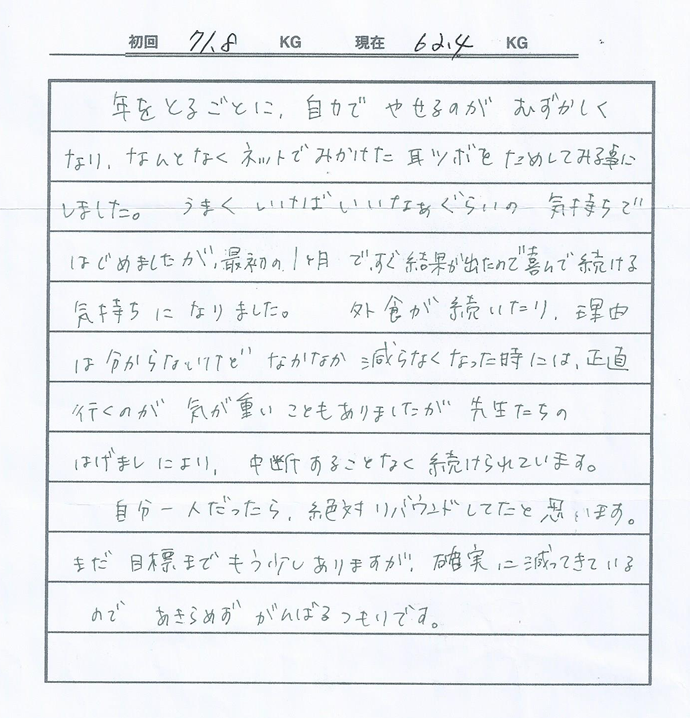 初回 71.8 KG 現在 62.4 KG
年をとるごとに、自力で やせるのが むずかしく
なり、なんとなく ネットで みかけた 耳ツボを ためしてみる事に
しました。 うまく いけば いいなぁぐらいの 気持ちで
はじめましたが、最初の 1ヶ月 で、すぐ 結果が出たので 喜んで 続ける
気持ちに なりました。 外食が 続いたり、理由
は 分からないけど なかなか 減らなくなった時には、正直
行くのが 気が重い こともありましたが 先生たちの
はげましにより、 中断することなく 続けられています。
自分一人だったら、絶対リバウンドしてたと思います。
まだ 目標まで もう少し ありますが、 確実に減ってきている
ので あきらめず がんばるつもりです。